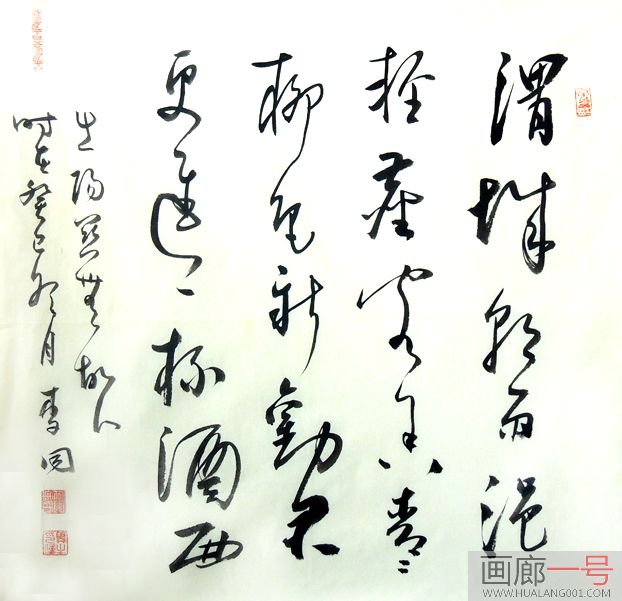 渭城朝雨浥
輕塵客舍青々
柳色新勸君
更進一杯酒西
出陽關無故人
时在癸巳冬月 李同
画廊一号
WWW.HUALANG001.COM